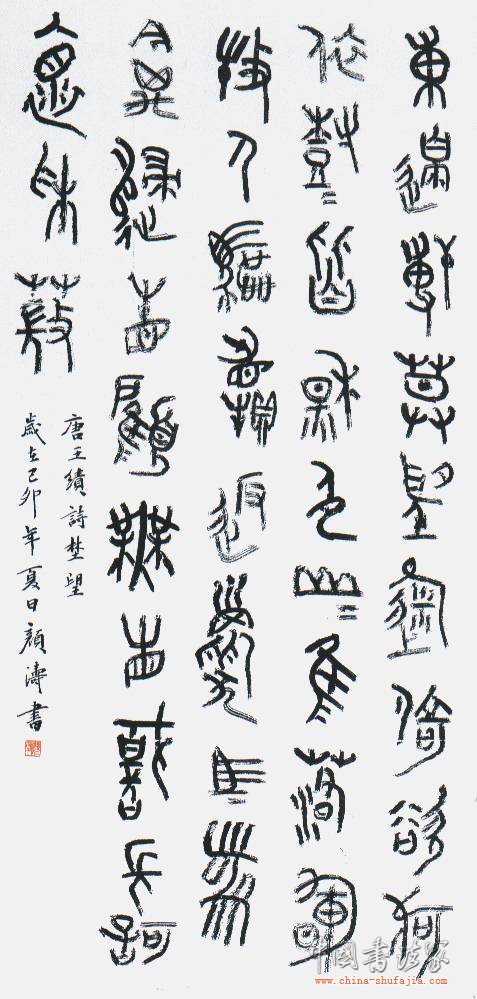 東皋薄暮望徙倚欲何
依樹〓皆秋色山〓隹落暉
牧人驅犢返獵馬帶
禽歸相顧無相識長歌
懷采薇
唐王績詩埜望
歲在己卯年夏日顏濤書
中国書法家
www.china-shufajia.com